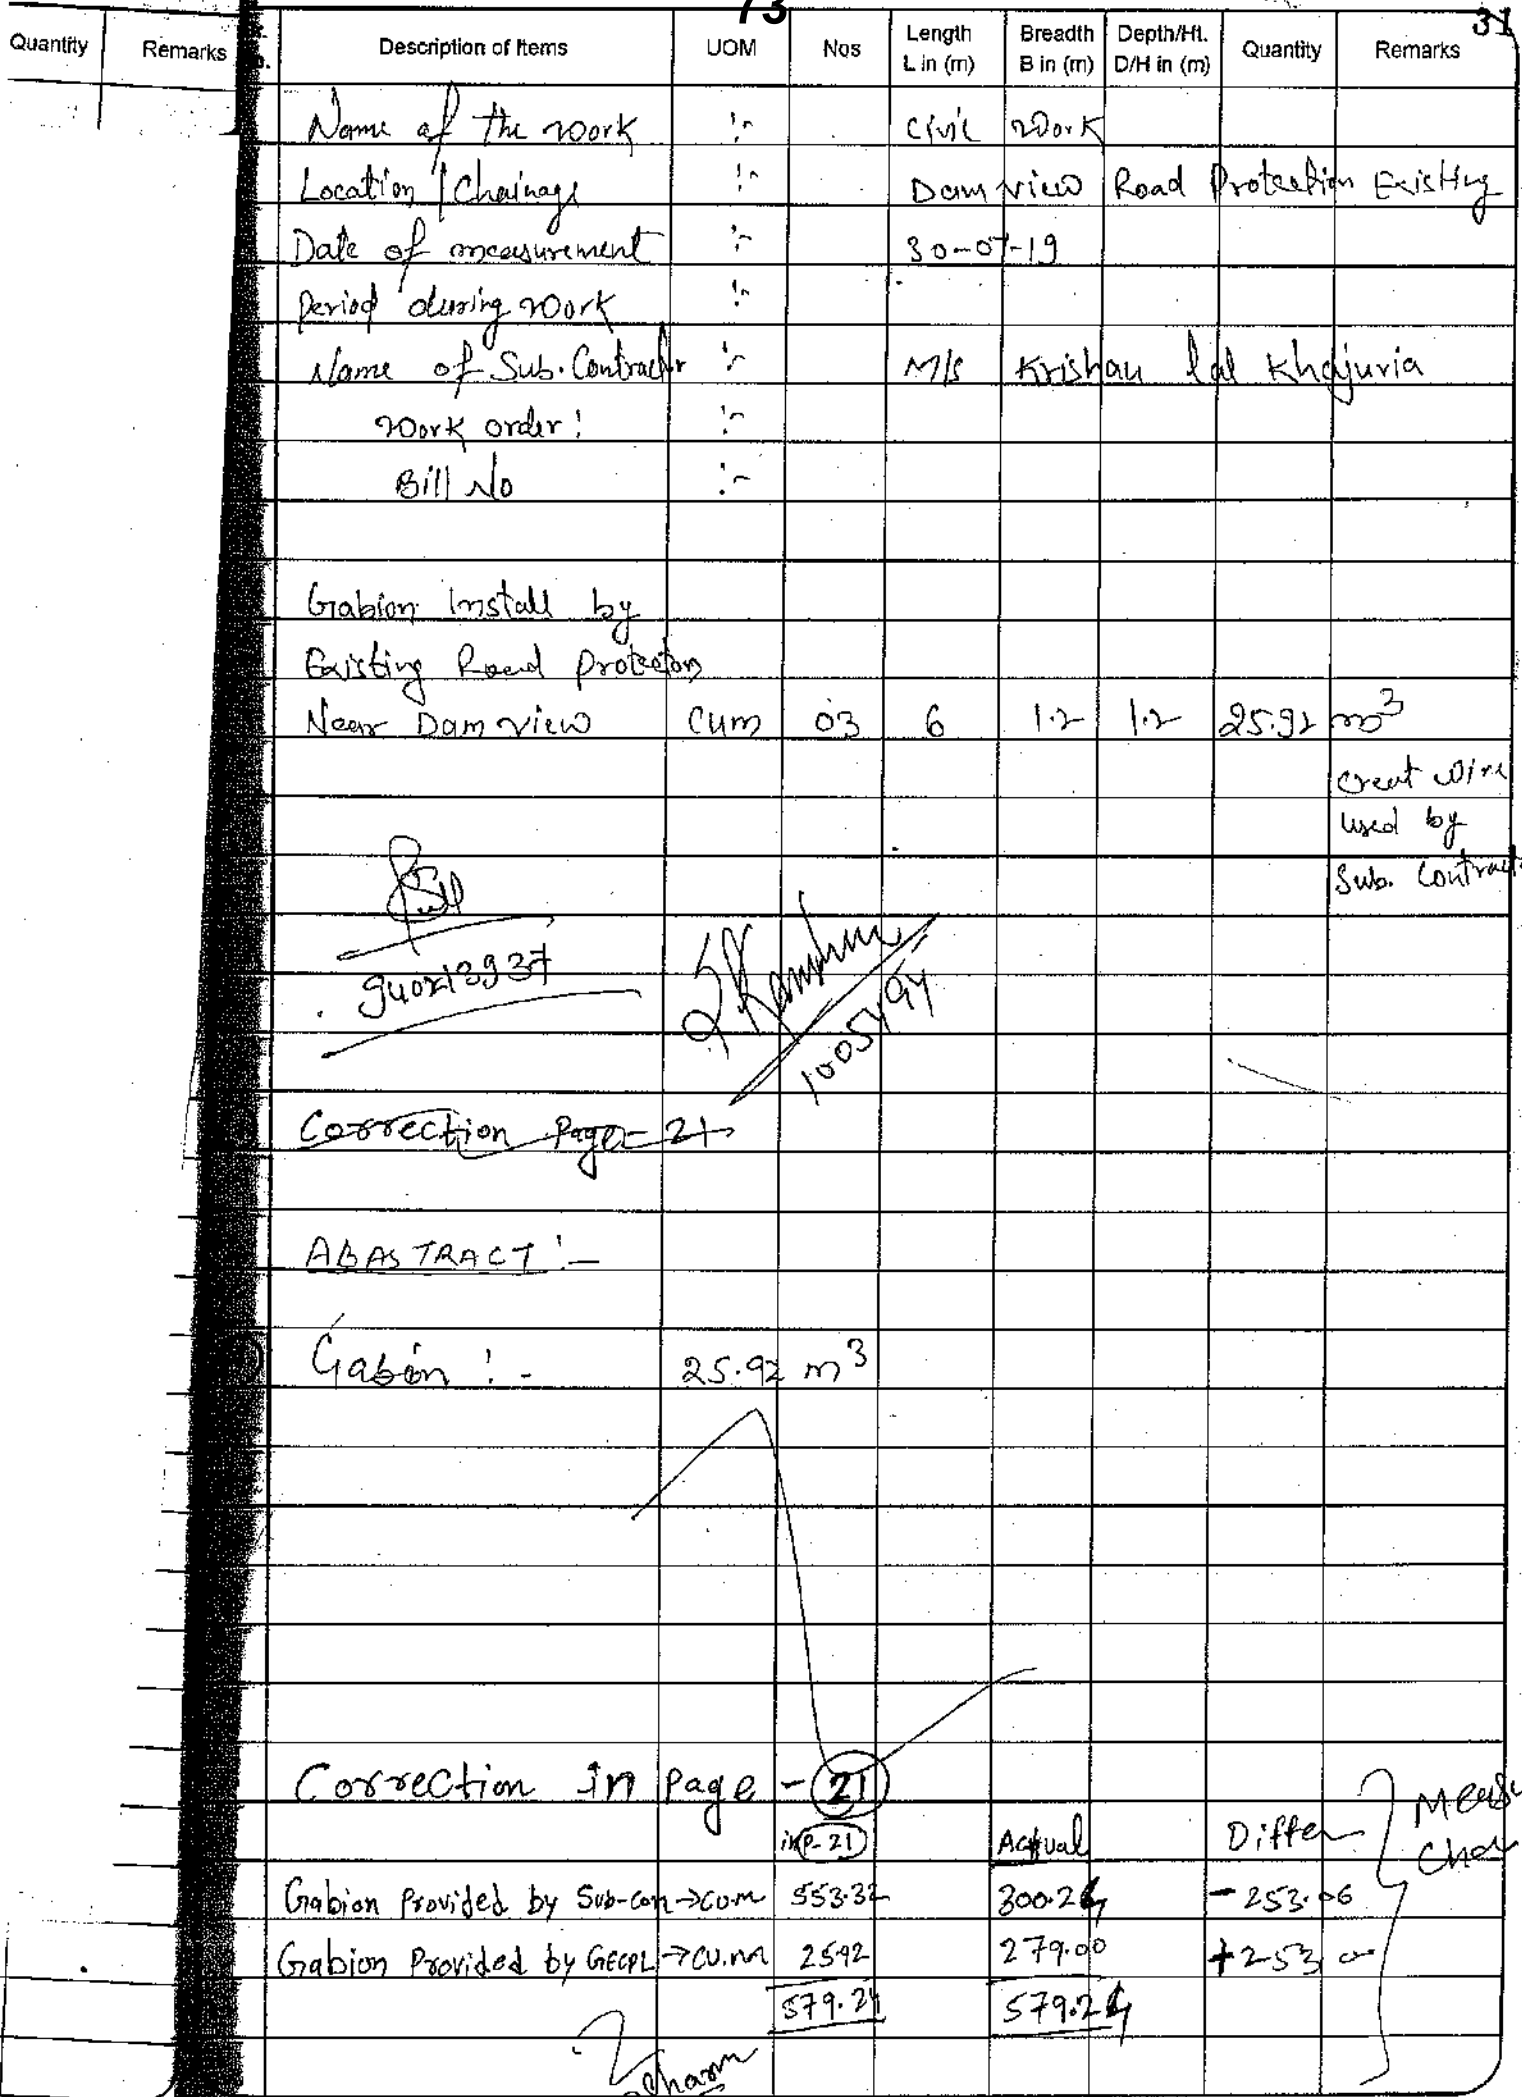 73
31
Quantity Remarks
Description of Items UOM Nos Length L in (m) Breadth B in (m) Depth/Ht. D/H in (m) Quantity Remarks
Name of the work :- Civil Work
Location / Chainage :- Dam view Road Protection Existing
Date of measurement :- 30-07-19
Period during work :-
Name of Sub. Contractor :- M/s Krishan lal Khajuria
Work order: :-
Bill No :-
Gabion Install by
Existing Road Protecton
Near Dam view Cum 03 6 1.2 1.2 25.92 m³
Creat wire
used by
Sub. Contract
1005494
Correction Page- 21
ABASTRACT :-
Gabion :- 25.92 m³
Correction in page - 21
in P-21 Actual Differ
Gabion Provided by Sub-con → cu.m 553.32 300.24 - 253.06
Gabion Provided by GECPL → cu.m 25.92 279.00 + 253
579.24 579.24